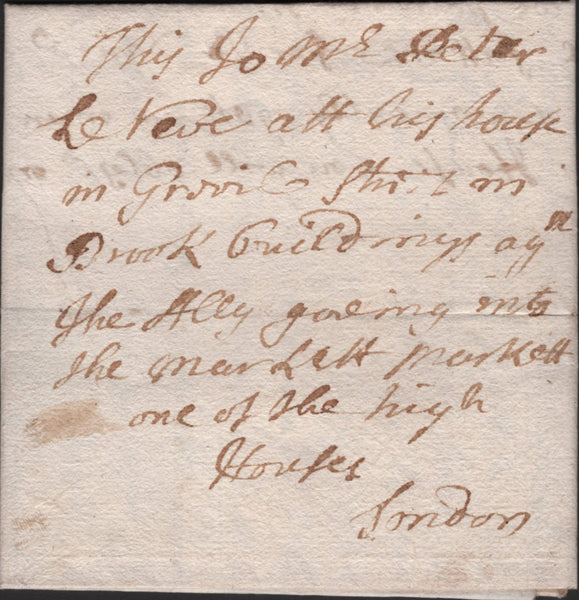 This To Mr Peter
Le Neve att his house
in Grevil Street in
Brook Buildings agn
the Ally goeing into
the Markett Markett
one of the high
Houses
London